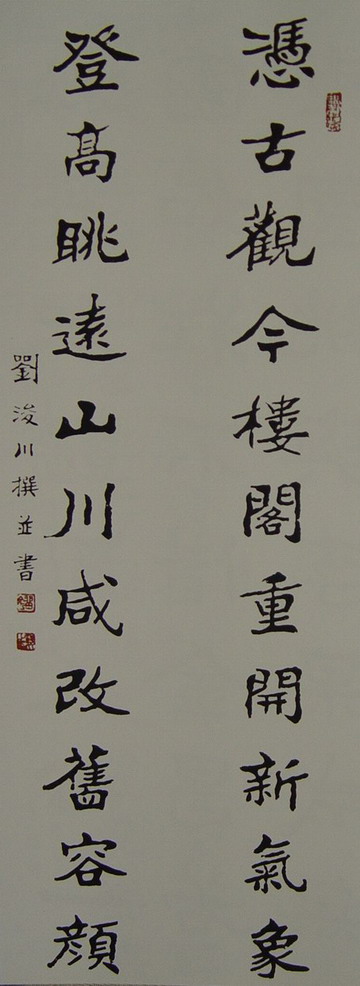 憑古觀今樓閣重開新氣象
登高眺遠山川咸改舊容顏
劉浚川撰並書